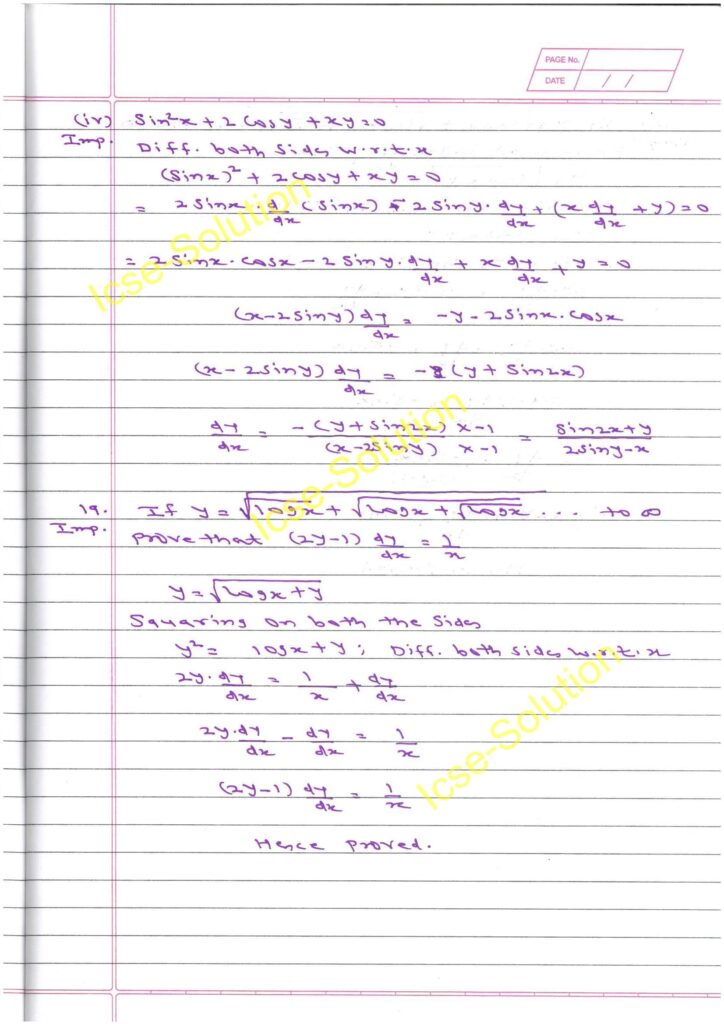 PAGE No.
DATE / /
(iv) Sin²x + 2 Cosy + xy = 0
Imp. Diff. both sides w.r.t.x
(Sinx)² + 2cosy + xy = 0
= 2 Sinx . d/dx (Sinx) - 2 Siny . dy/dx + (x dy/dx + y) = 0
= 2 Sinx . cosx - 2 Siny . dy/dx + x dy/dx + y = 0
(x - 2 Siny) dy/dx = -y - 2 Sinx . cosx
(x - 2 Siny) dy/dx = - (y + Sin2x)
dy/dx = -(y + Sin2x) x -1 / (x - 2Siny) x -1 = Sin2x + y / 2Siny - x
19. If y = √logx + √logx + √logx ... to ∞
Imp. Prove that (2y-1) dy/dx = 1/x
y = √logx + y
Squaring on both the Sides
y² = logx + y ; Diff. both sides w.r.t.x
2y . dy/dx = 1/x + dy/dx
2y . dy/dx - dy/dx = 1/x
(2y-1) dy/dx = 1/x
Hence Proved.
Icse-Solution
Icse-Solution
Icse-Solution